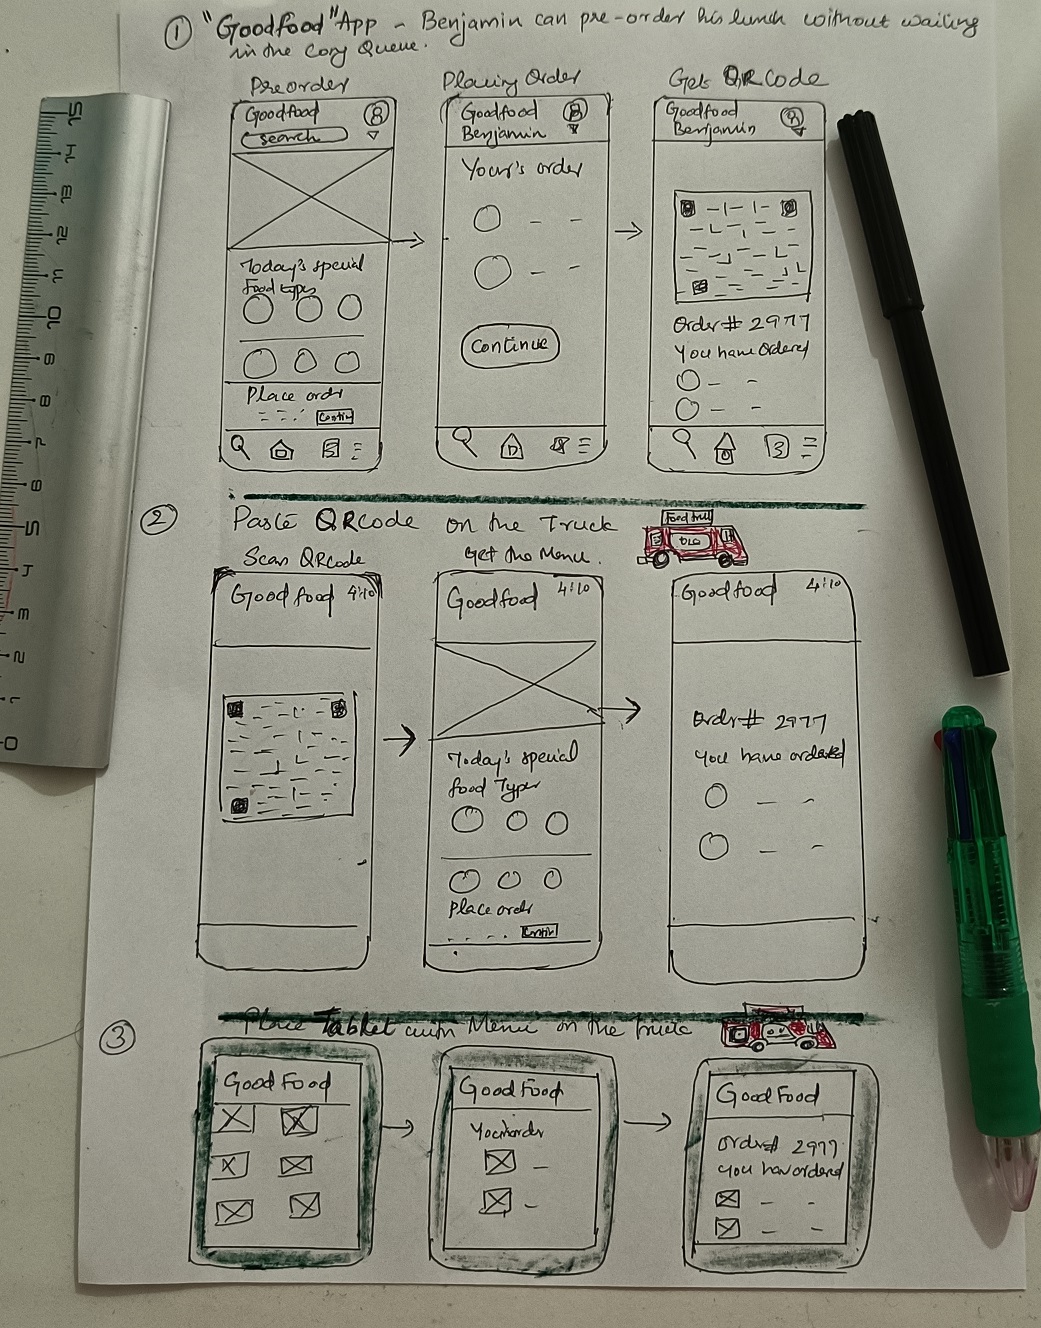 ① "Goodfood" App - Benjamin can pre-order his lunch without waiting
in the long Queue.
Preorder
Placing Order
Gets QR Code
Goodfood
search
Today's special
Food types
Place order
Contin
Goodfood
Benjamin
Your's order
Continue
Goodfood
Benjamin
Order # 2977
You have Ordered
3
② Paste QRcode on the Truck
Food truck
Scan QRcode
Get the Menu.
Good food 4:10
Goodfood 4:10
Today's special
food Types
Place order
Contin
Goodfood 4:10
Order # 2977
You have ordered
③ Place Tablet with Menu on the truck
Good Food
Good Food
Your order
Good Food
Order# 2977
You have ordered
15
14
13
12
11
10
9
8
7
6
5
4
3
2
1
0